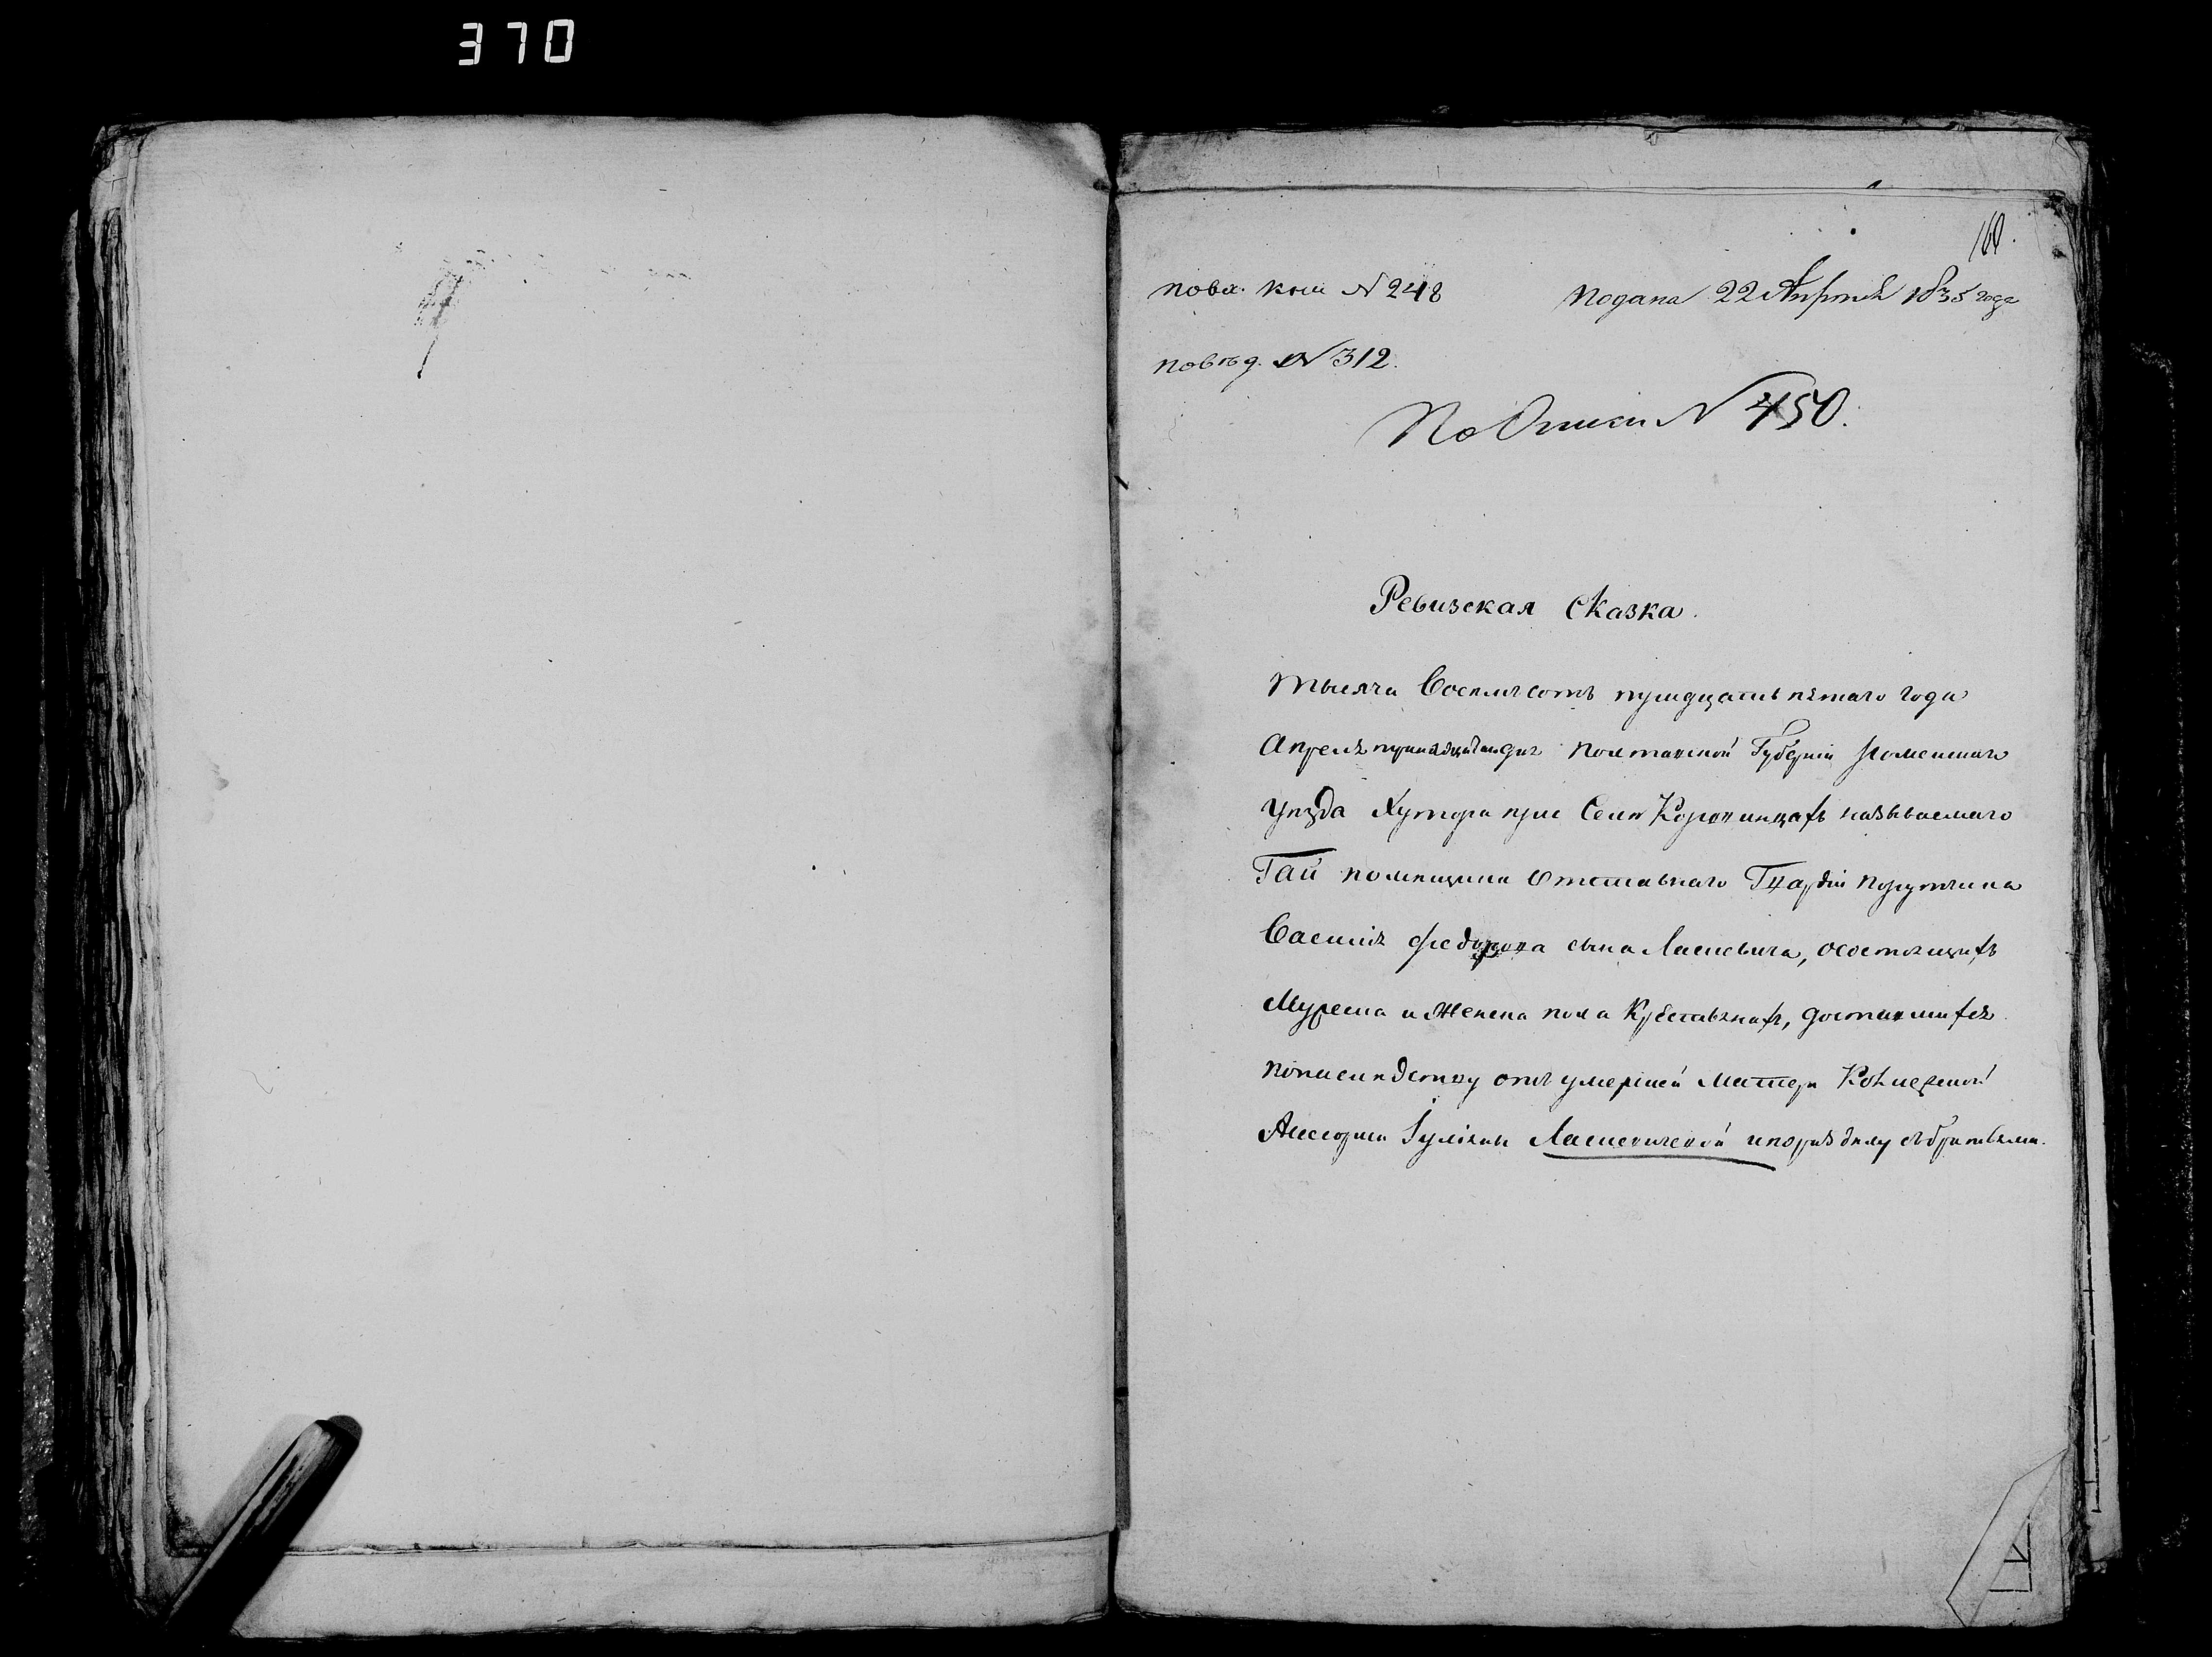 370
160.
по вх. кни N 248
подана 22 Апреля 1835 года
по вѣд. N 312.
По Описи N 450.
Ревизская Сказка.
Тысяча Восемьсотъ тридцать пятаго года
Апреля дня Полтавской Губерніи Роменскаго
Уѣзда Хутора при Селѣ Коровинцахъ называемаго
Гай помѣщика Отставнаго Гвардіи Порутчика
Василія Федорова сына Лашкевича, осостоящихъ
Мужеска и Женска пола Крестьянахъ, доставшихся
по наслѣдству отъ умершей Матери Колежской
Асессорши Іуліаны Лашкевичевой и поразделу събратьями.